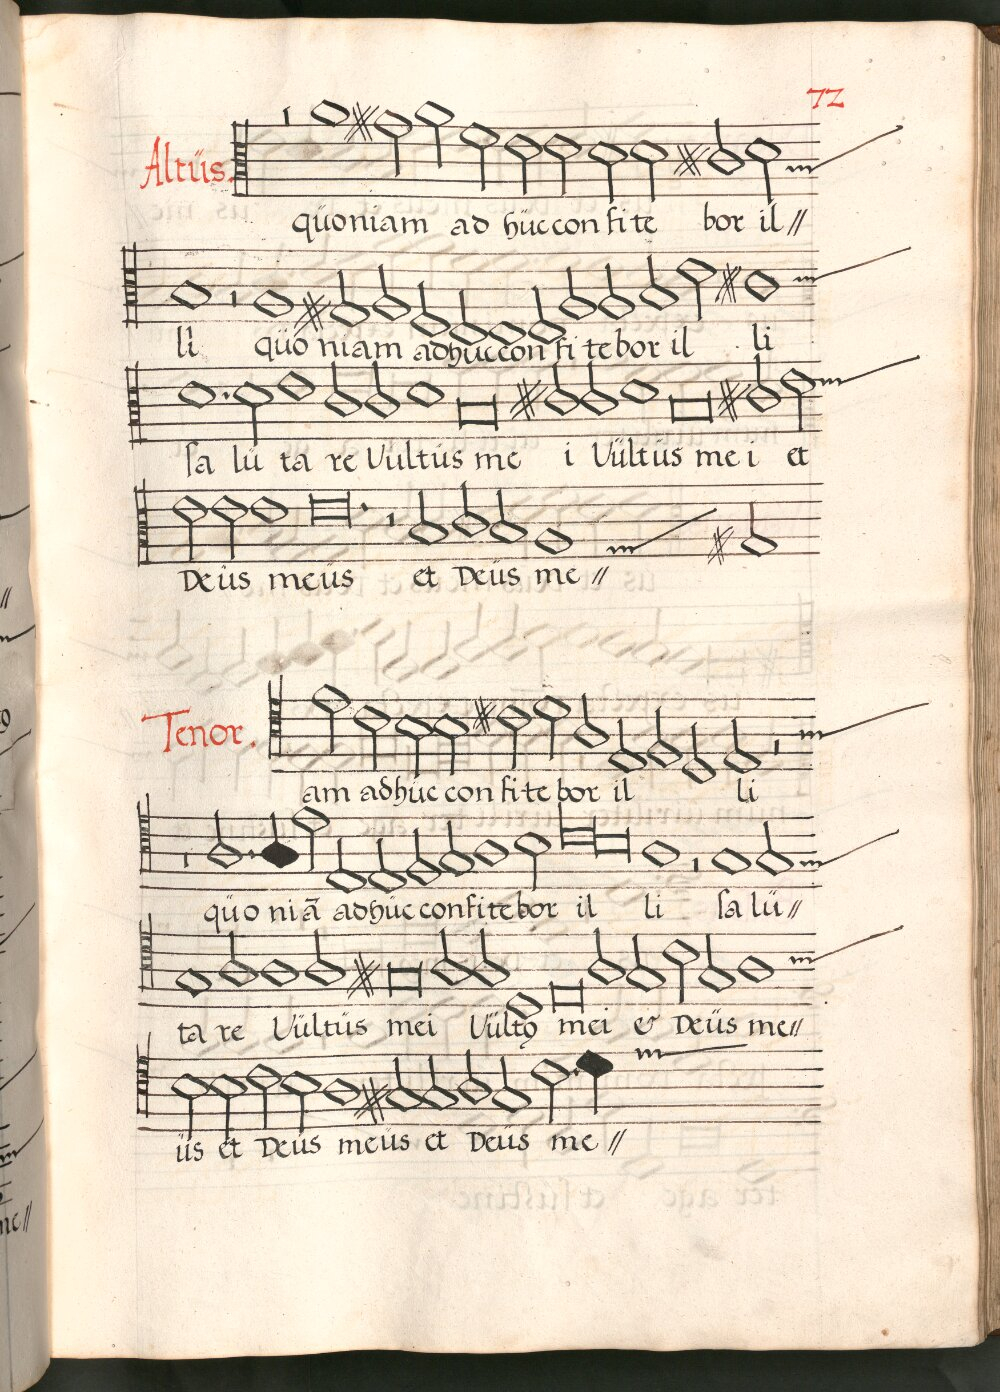 72
Altüs.
qüoniam ad hüc confite bor il//
li qüo niam adhüccon fi tebor il li
sa lü ta re Vültüs me i Vültüs mei et
Deüs meüs et Deüs me//
Tenor.
am adhüc confitebor il li
qüo niã adhüc confitebor il li sa lü//
ta re Vültüs mei Vültꝯ mei & Deüs me//
üs et Deüs meüs et Deüs me//